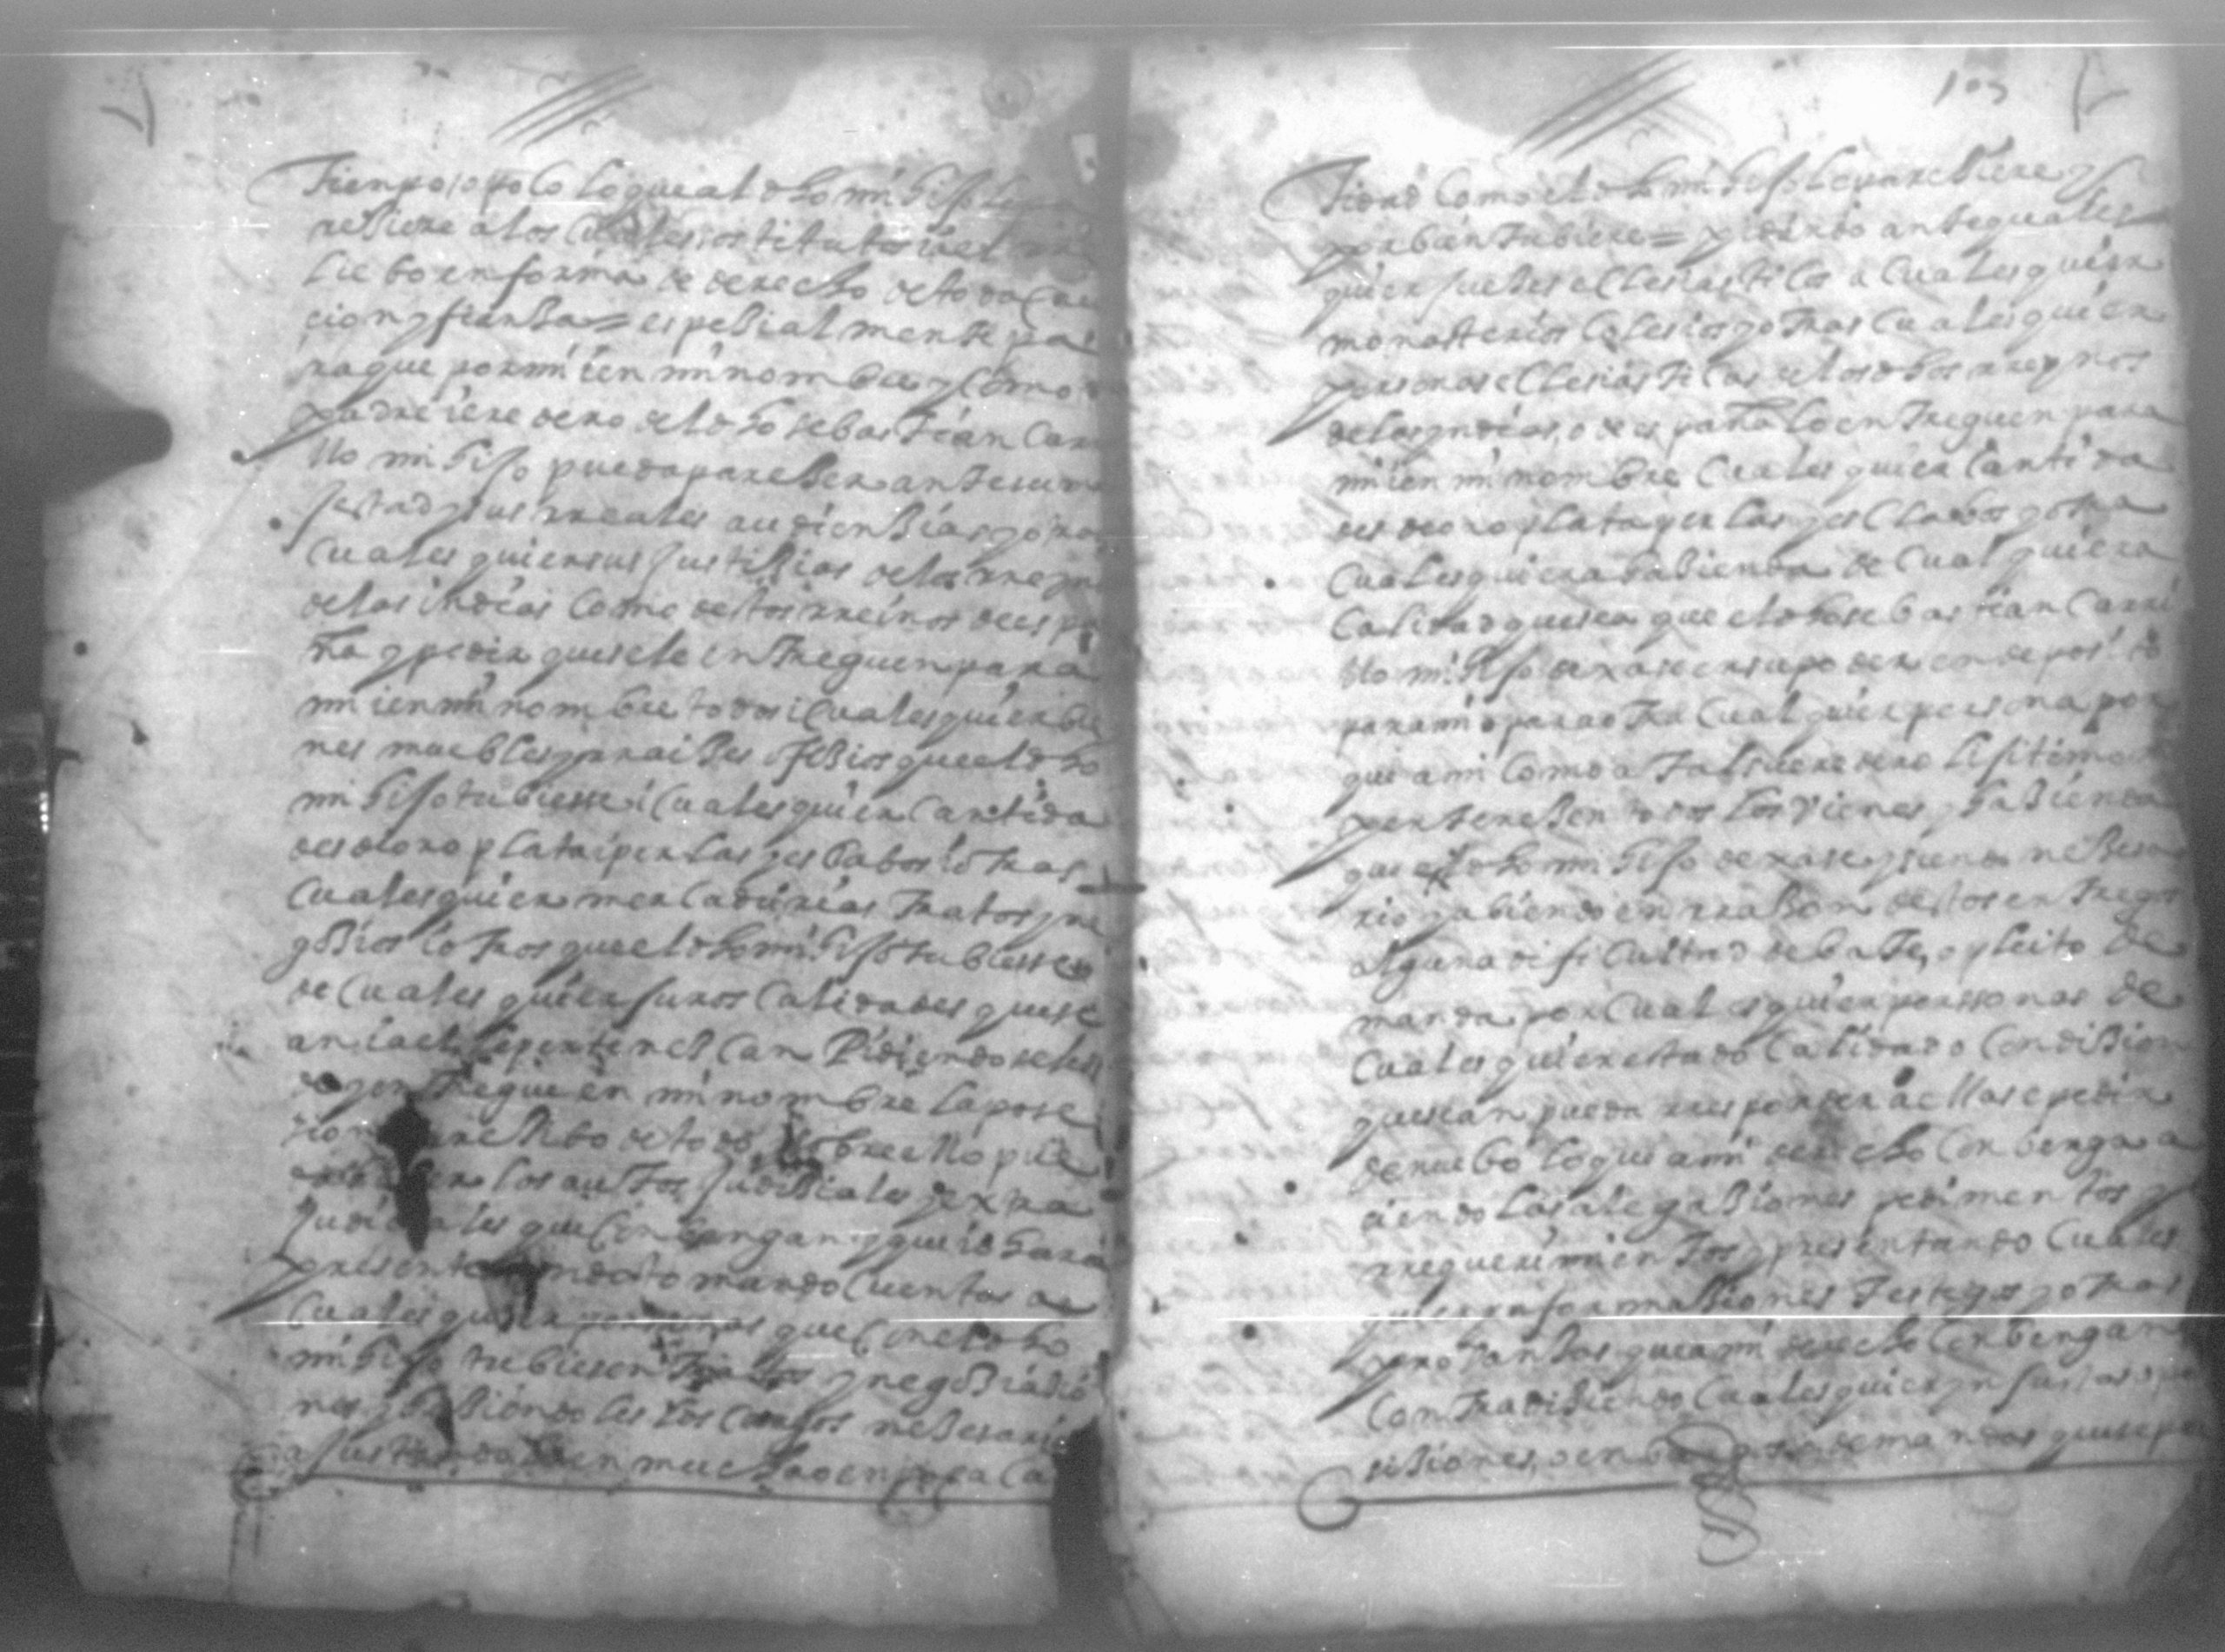 Tienpo o poco lo que al dho mi hijo le pa
resiere a los cuales sostitutos i a el rre
liebo en forma de derecho de toda cau
cion y fiansa = espesialmente pa
ra que por mi i en mi nombre y como
padre i eredero del dho sebastian carri
llo mi hijo pueda pareser ante su ma
jestad y sus rreales audiensias y otras
cuales quier sus justisias de los rreynos
de las indias como destos rreinos de espa
ña y pedir que se le entreguen para
mi i en mi nombre todos i cualesquier bie
nes muebles y rraises ofisios que el dho
mi hijo tubiese i cualesquier cantida
des de oro plata i perlas y esclabos i otras
cualesquier mercadurias tratos y ne
gosios i otros que el dho mi hijo tubiesse
de cuales quier juros calidades que se
an i a el le pertenescan pidiendo se les
de y entregue en mi nombre la pose
sion rresibo de todo sobre ello pue
los autos judisiales y extra
judiciales que conbengan y que io haria
presente tomando cuentas a
cuales quier personas que con el dho
mi hijo tubiesen tratos y negosiasio
nes y hasiendoles los cargos nesesarios
en mucha o en poca ca
103
tidad como el dho mi hijo le paresiere y
por bien tubiere = y pidiendo ante quales
quier jueses eclesiasticos a cuales quier
monasterios colesios y otras cuales quier
personas eclesiasticas de los dhos rreynos
de las yndias, o de españa lo entreguen para
mi i en mi nombre cuales quier cantida
des de oro plata perlas y esclabos y otra
cualesquiera hasienda de cual quiera
calidad que sea que el dho sebastian carri
llo mi hijo dexase en su poder en deposito
para mi o para otra cual quier persona por
que a mi como a tal eredero lejitimo
pertenesen todos los vienes y hasienda
que el dho mi hijo dexase y siendo nesesa
rio y abiendo en rrason destos entregos
alguna dificultad debate, o pleito de
manda por cuales quier perssonas de
cuales quier estado calidad o condision
que sean pueda rresponder a ellas e pedir
de nuebo lo que a mi derecho conbenga a
ciendo las alegasiones pedimentos y
rrequerimientos y presentando cuales
quier ynformasiones testigos y otras
probansas que a mi derecho conbengan
contradisiendo cuales quier ynjustas
sisiones, o enbargos demandas que se